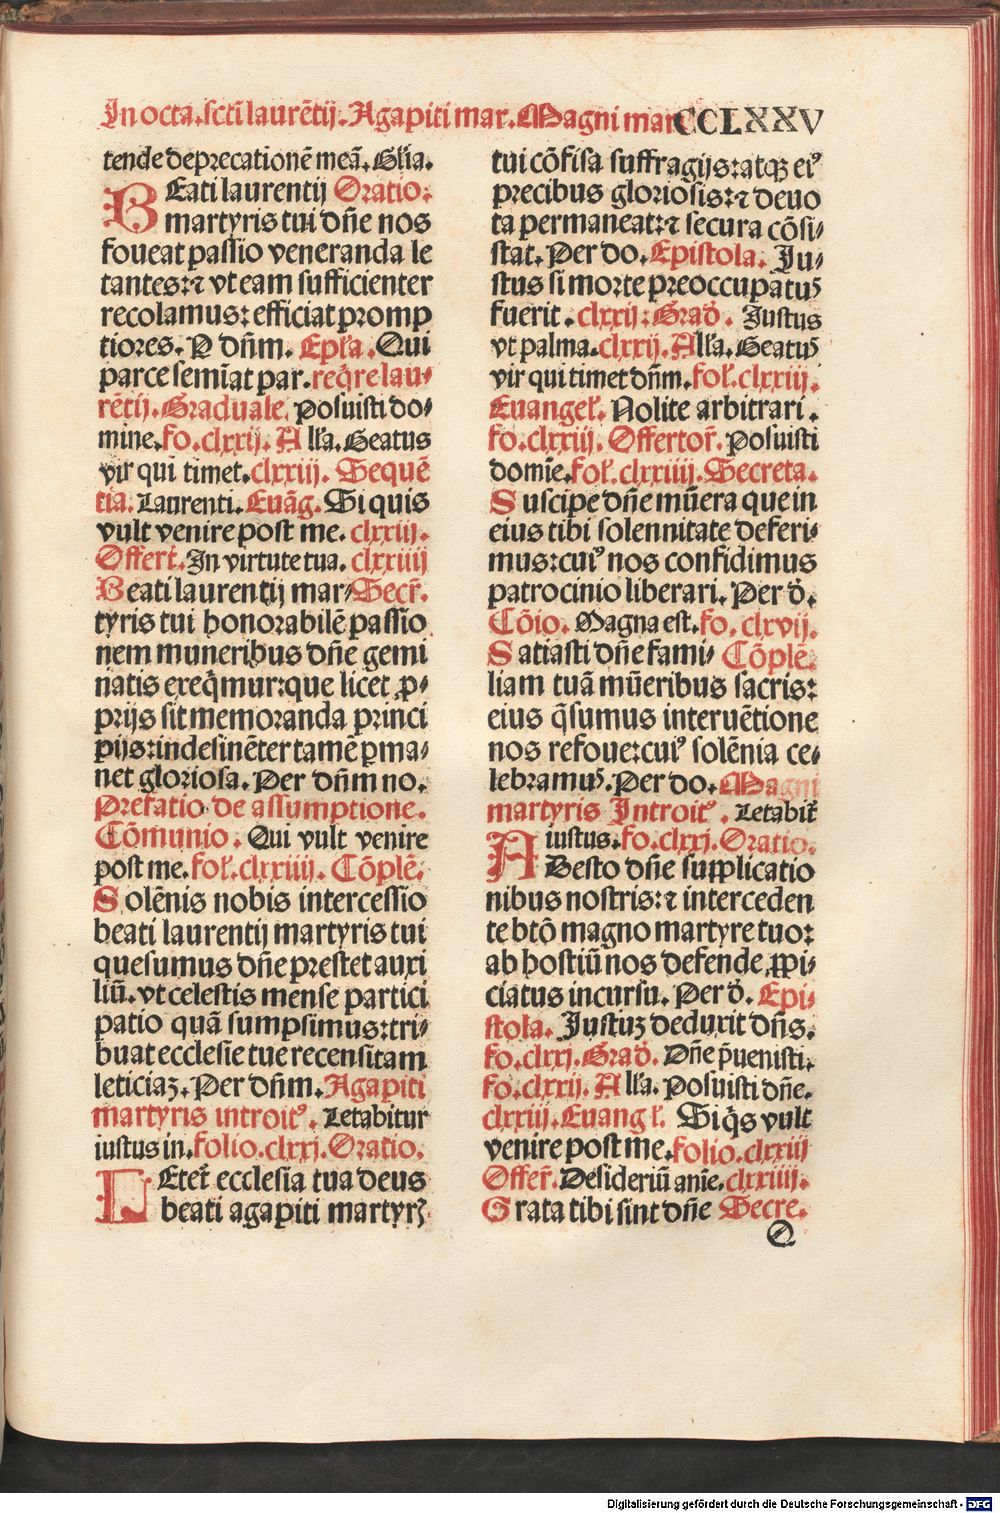 In octa. scti laurētij. Agapiti mar. Magni mar. CCLXXV
tende deprecationē meā. Gl̄ia.
BEati laurentij Oratio.
martyris tui dn̄e nos
foueat passio veneranda le
tantes: ⁊ vt eam sufficienter
recolamus: efficiat promp
tiores. P dn̄m. Epl̄a. Qui
parce semīat par. reqͥre lau⸗
rētij. Graduale. Posuisti do⸗
mine. fo. clxxij. All̄a. Beatus
vir qui timet. clxxiij. Sequē
tia. Laurenti. Euāg. Si quis
vult venire post me. clxxiij.
Offert̄. In virtute tua. clxxiiij
Beati laurentij mar⸗ Secr̄.
tyris tui honorabilē passio
nem muneribus dn̄e gemi
natis exeqͥmur: que licet ꝓ⸗
prijs sit memoranda princi
pijs: indesinēter tamē ꝑma⸗
net gloriosa. Per dn̄m no.
Prefatio de assumptione.
Cōmunio. Qui vult venire
post me. fol̄. clxxiiij. Cōplē.
Solēnis nobis intercessio
beati laurentij martyris tui
quesumus dn̄e prestet auxi
liū. vt celestis mense partici
patio quā sumpsimus: tri⸗
buat ecclesie tue recensitam
leticiaꝫ. Per dn̄m. Agapiti
martyris introitꝰ. Letabitur
iustus in. folio. clxxj. Oratio.
LEtet̄ ecclesia tua deus
beati agapiti martyrꝫ
tui cōfisa suffragijs: atqꝫ eiꝰ
precibus gloriosis: ⁊ deuo
ta permaneat: ⁊ secura cōsi⸗
stat. Per do. Epistola. Iu⸗
stus si morte preoccupatus
fuerit. clxxij: Grad̄. Iustus
vt palma. clxxij. All̄a. Beatus
vir qui timet dn̄m. fol̄. clxxiij.
Euangel̄. Nolite arbitrari.
fo. clxxiij. Offertor̄. Posuisti
domīe. fol̄. clxxiiij. Secreta.
Suscipe dn̄e mūera que in
eius tibi solennitate deferi⸗
mus: cuiꝰ nos confidimus
patrocinio liberari. Per d̄.
Cōio. Magna est. fo. clxvij.
Satiasti dn̄e fami⸗ Cōplē.
liam tuā mūeribus sacris:
eius qͥsumus interuētione
nos refoue: cuiꝰ solēnia ce⸗
lebramus. Per do. Magni
martyris Introitꝰ. Letabit̄
iustus. fo. clxxj. Oratio.
ABesto dn̄e supplicatio
nibus nostris: ⁊ interceden
te btō magno martyre tuo:
ab hostiū nos defende ꝓpi⸗
ciatus incursu. Per d̄. Epi⸗
stola. Iustuꝫ deduxit dn̄s.
fo. clxxj. Grad̄. Dn̄e p̄uenisti.
fo. clxxij. All̄a. Posuisti dn̄e.
clxxiij. Euangl̄. Si qͥs vult
venire post me. folio. clxxiij
Offer̄. Desideriū anīe. clxxiiij.
Grata tibi sint dn̄e Secre.
Q
Digitalisierung gefördert durch die Deutsche Forschungsgemeinschaft - DFG